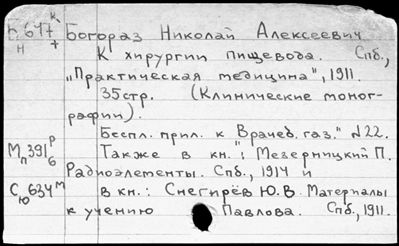 Б 677 к/7 Богораз Николай Алексеевич
н К хирургии пищевода. Спб.,
„Практическая медицина", 1911.
35стр. (Клинические моног-
рафии).
Беспл. прил. к "Врачеб. газ." №22.
Мп391 р/6 Также в кн.: Мезерницкий П.
Радиоэлементы. Спб., 1914 и
Сю634 м в кн.: Снегирёв Ю.В. Материалы
к учению Павлова. Спб., 1911.